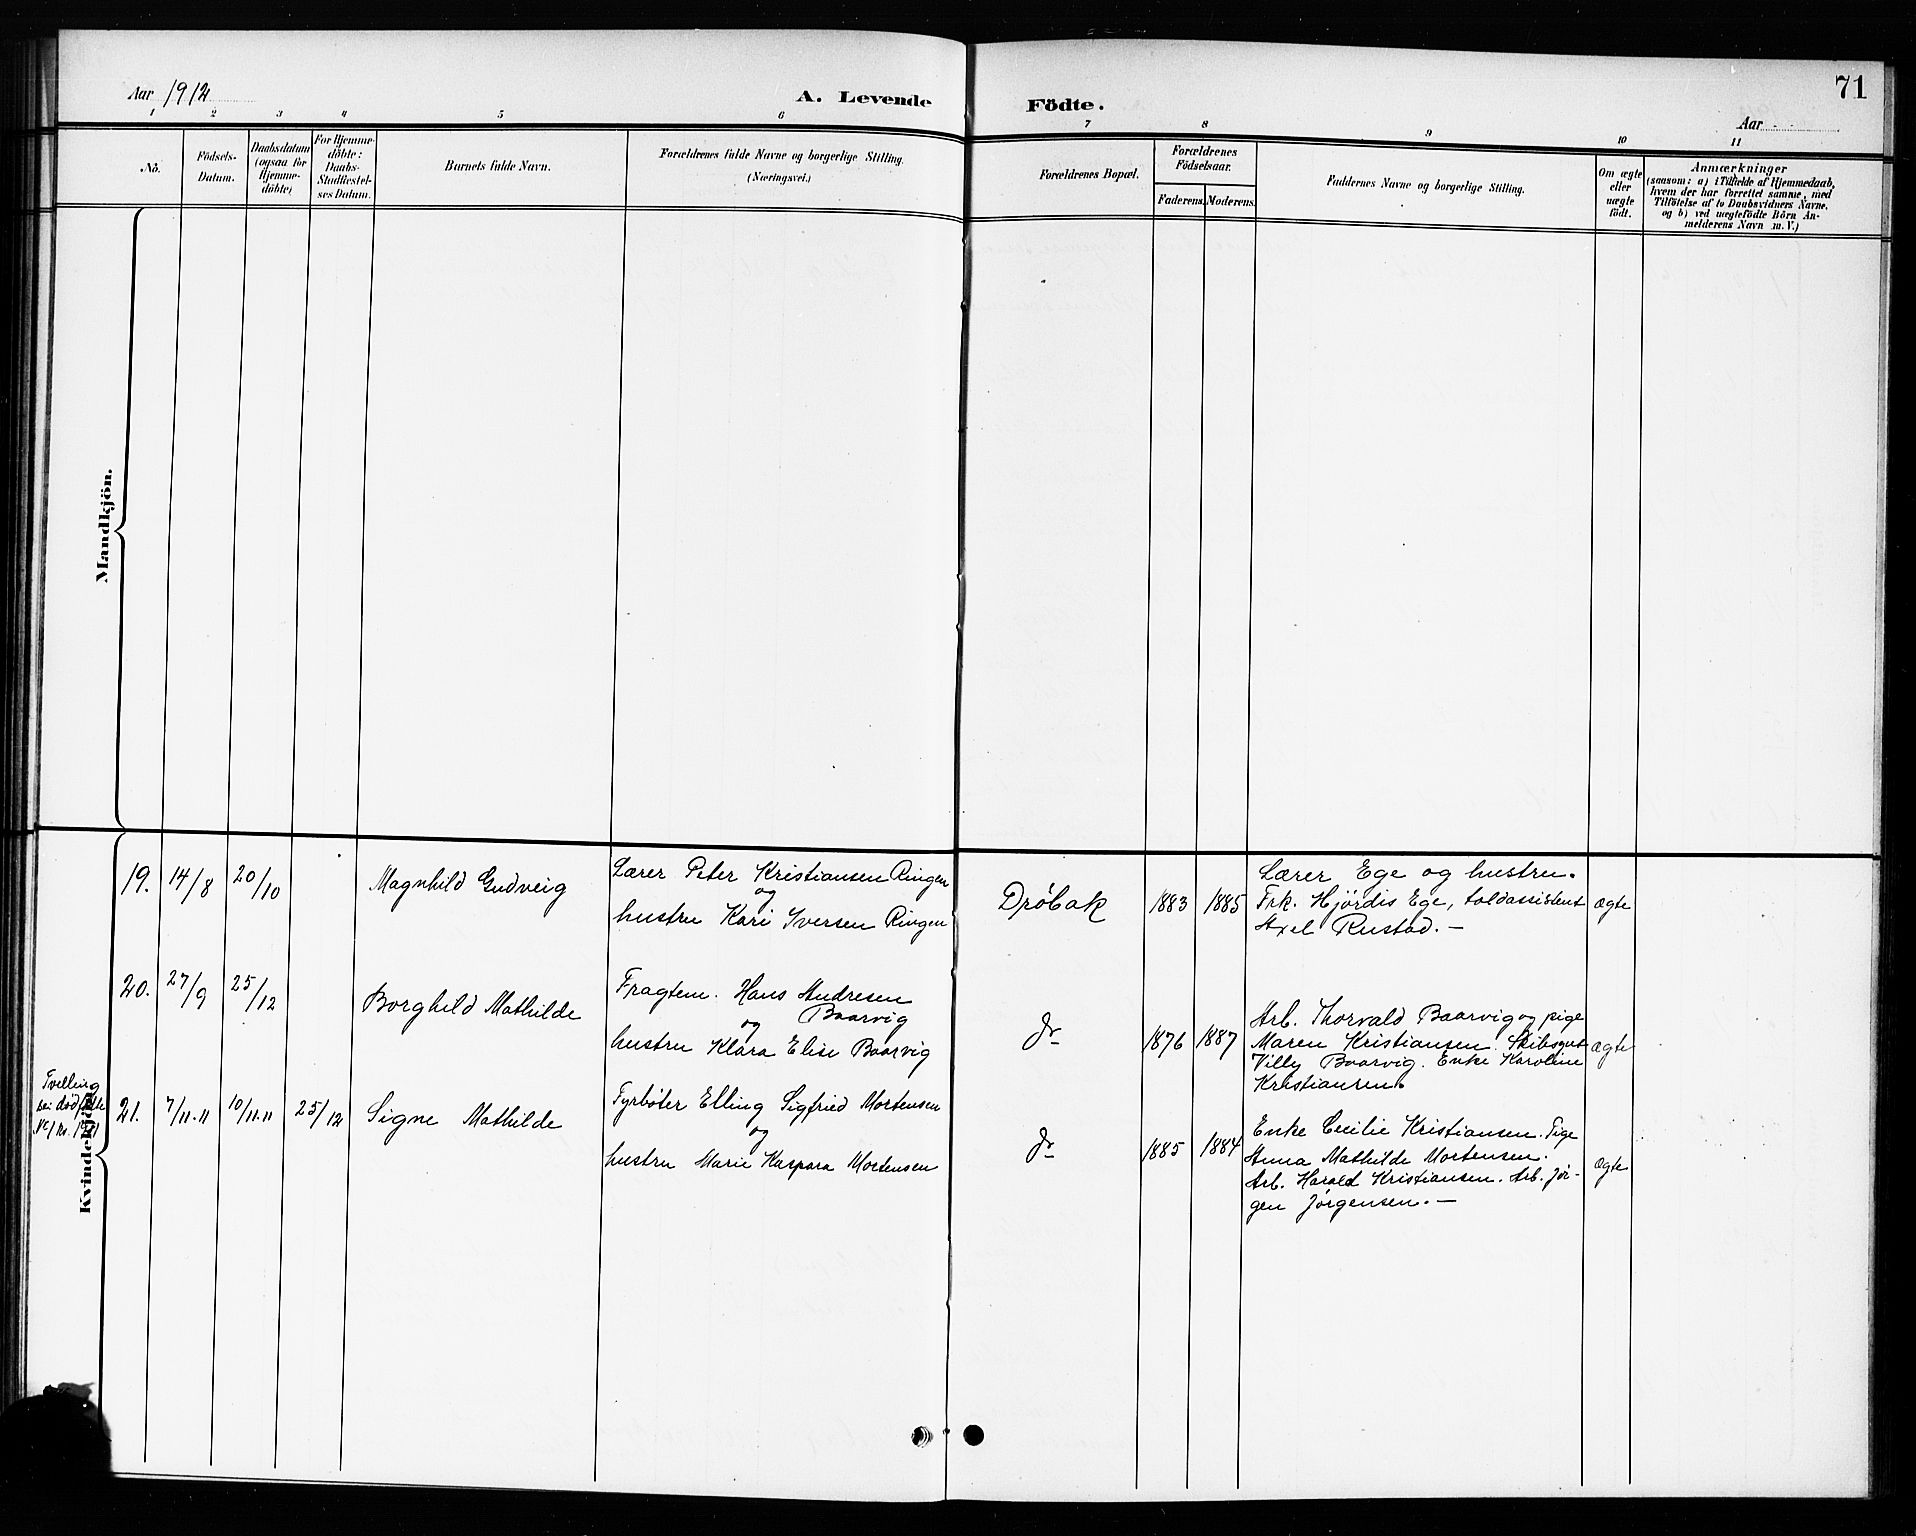 71
Aar 1912 A. Levende Födte. Aar
1 2 3 4 5 6 7 8 9 10 11
No.
Födsels-
Datum.
Daabsdatum
(ogsaa for
Hjemme-
döbte)
For Hjemme-
döbte:
Daabs-
Stadfæstel-
ses Datum.
Barnets fulde Navn.
Forældrenes fulde Navne og borgerlige Stilling.
(Næringsvei.)
Forældrenes Bopæl.
Forældrenes
Födselsaar.
Faderens. Moderens.
Faddernes Navne og borgerlige Stilling.
Om ægte
eller
uægte
födt.
Anmærkninger
(saasom: a) i Tilfælde af Hjemmedaab,
hvem der har forrettet samme, med
Tilföielse af to Daabsvidners Navne.
og b) ved uægtefödte Börn An-
melderens Navn m. V.)
Mandkjön.
Kvindekjön.
19. 14/8 20/10 Magnhild Gudveig
Lærer Peter Kristiansen Ringen
og
hustru Kari Iversen Ringen
Drøbak 1883 1885
Lærer Ege og hustru.
Frk. Hjørdis Ege, toldassistent
Axel Rustad. —
ægte
20. 27/9 25/12 Borghild Mathilde
Fragtem. Hans Andresen
Baarvig
og
hustru Klara Elise Baarvig
do 1876 1887
Arb. Thorvald Baarvig og pige
Maren Kristiansen. Skibsgut
Villy Baarvig. Enke Karoline
Kristiansen.
ægte
Tvilling
21. 7/11.11 10/11.11 25/12 Signe Mathilde
Fyrbøter Elling Sigfried Mortensen
og
hustru Marie Kaspara Mortensen
do 1885 1884
Enke Cecilie Kristiansen. Pige
Anna Mathilde Mortensen.
Arb. Harald Kristiansen. Arb. Jør-
gen Jørgensen. —
ægte